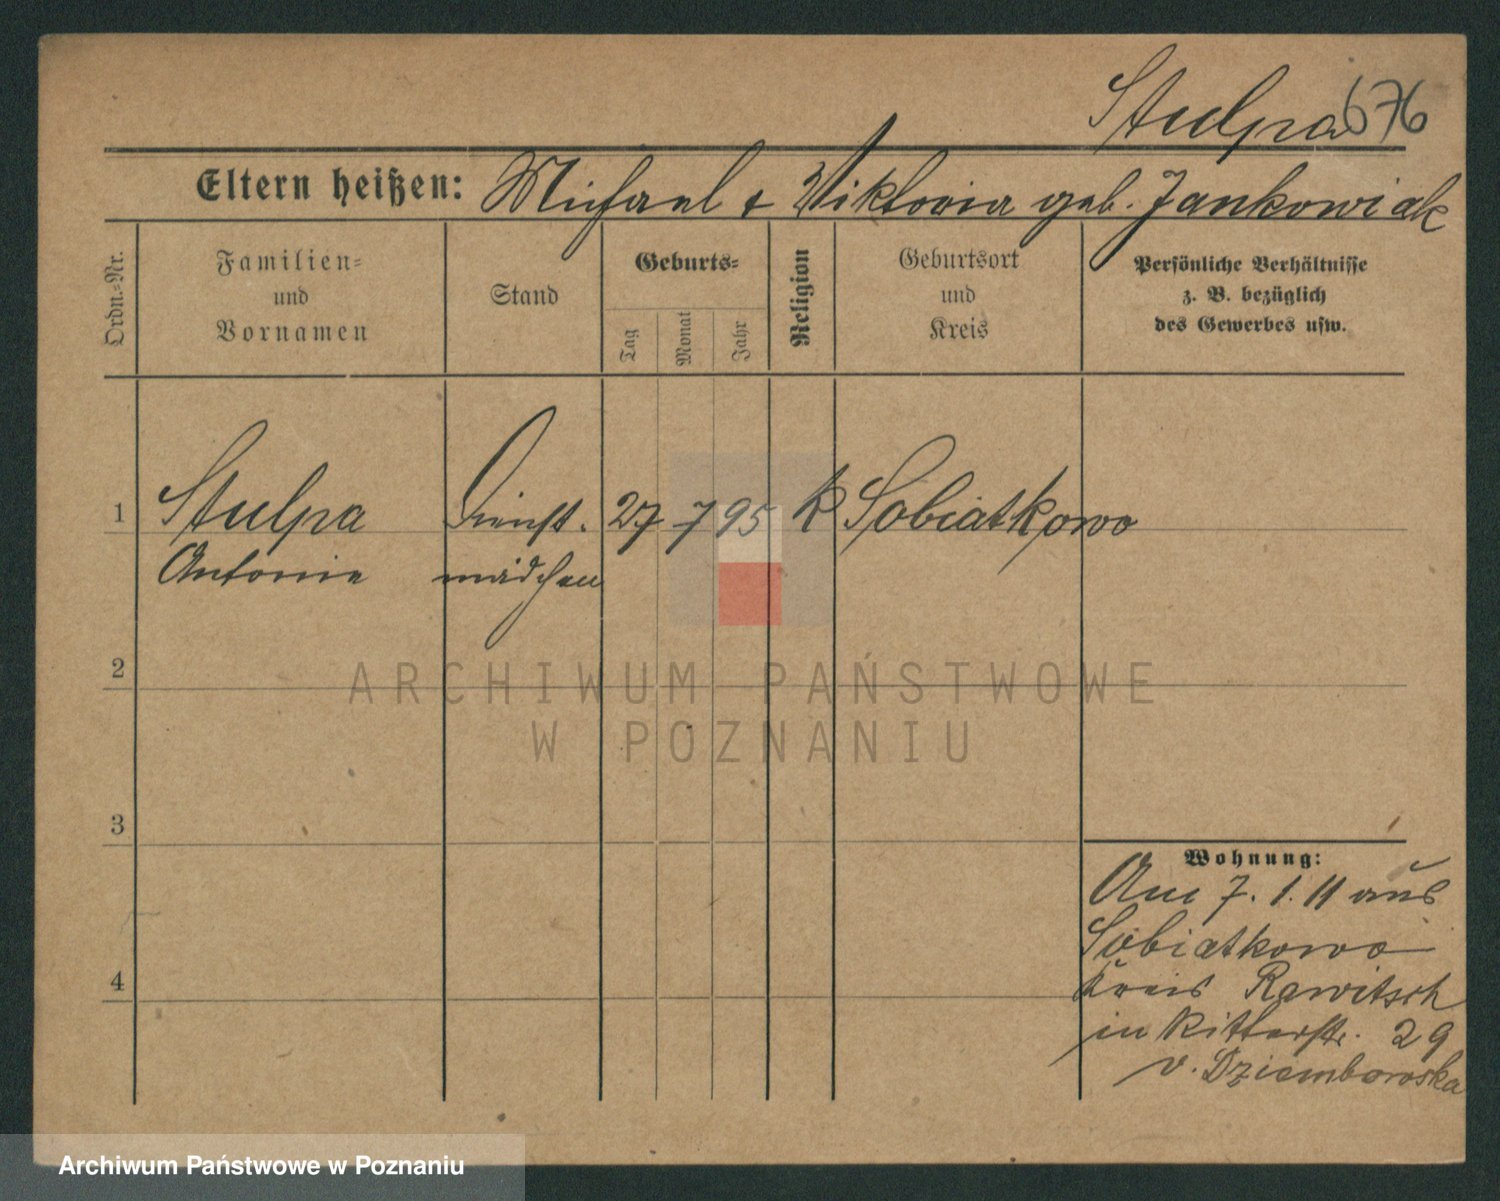 Stulpa 676
Eltern heißen: Michael & Viktoria geb. Jankowiak
Ordn.-Nr.
Familien-
und
Vornamen
Stand
Geburts-
Tag
Monat
Jahr
Religion
Geburtsort
und
Kreis
Persönliche Verhältnisse
z. B. bezüglich
des Gewerbes usw.
1 Stulpa Dienst. 27 7 95 k Sobiatkowo
Antonie mädchen
2
3
4
Wohnung:
Am 7. 1. 11 aus
Sobiatkowo
Kreis Rawitsch
in Ritterstr. 29
v. Dziembowska
ARCHIWUM PAŃSTWOWE
W POZNANIU
Archiwum Państwowe w Poznaniu